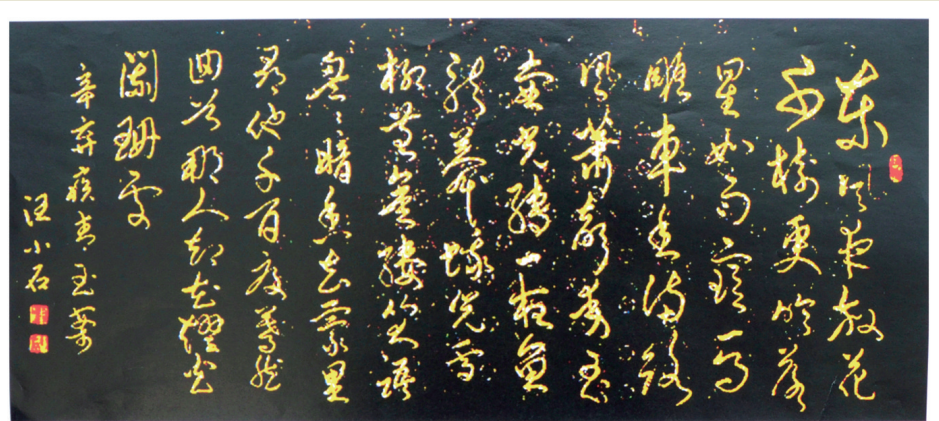 東风夜放花
千樹更吹落
星如雨寶馬
雕車香满路
鳳簫聲動玉
壶光轉一夜魚
龍舞蛾兒雪
柳黄金縷笑語
盈盈暗香去衆里
尋他千百度驀然
回首那人却在燈火
闌珊處
辛弃疾青玉案
汪小石